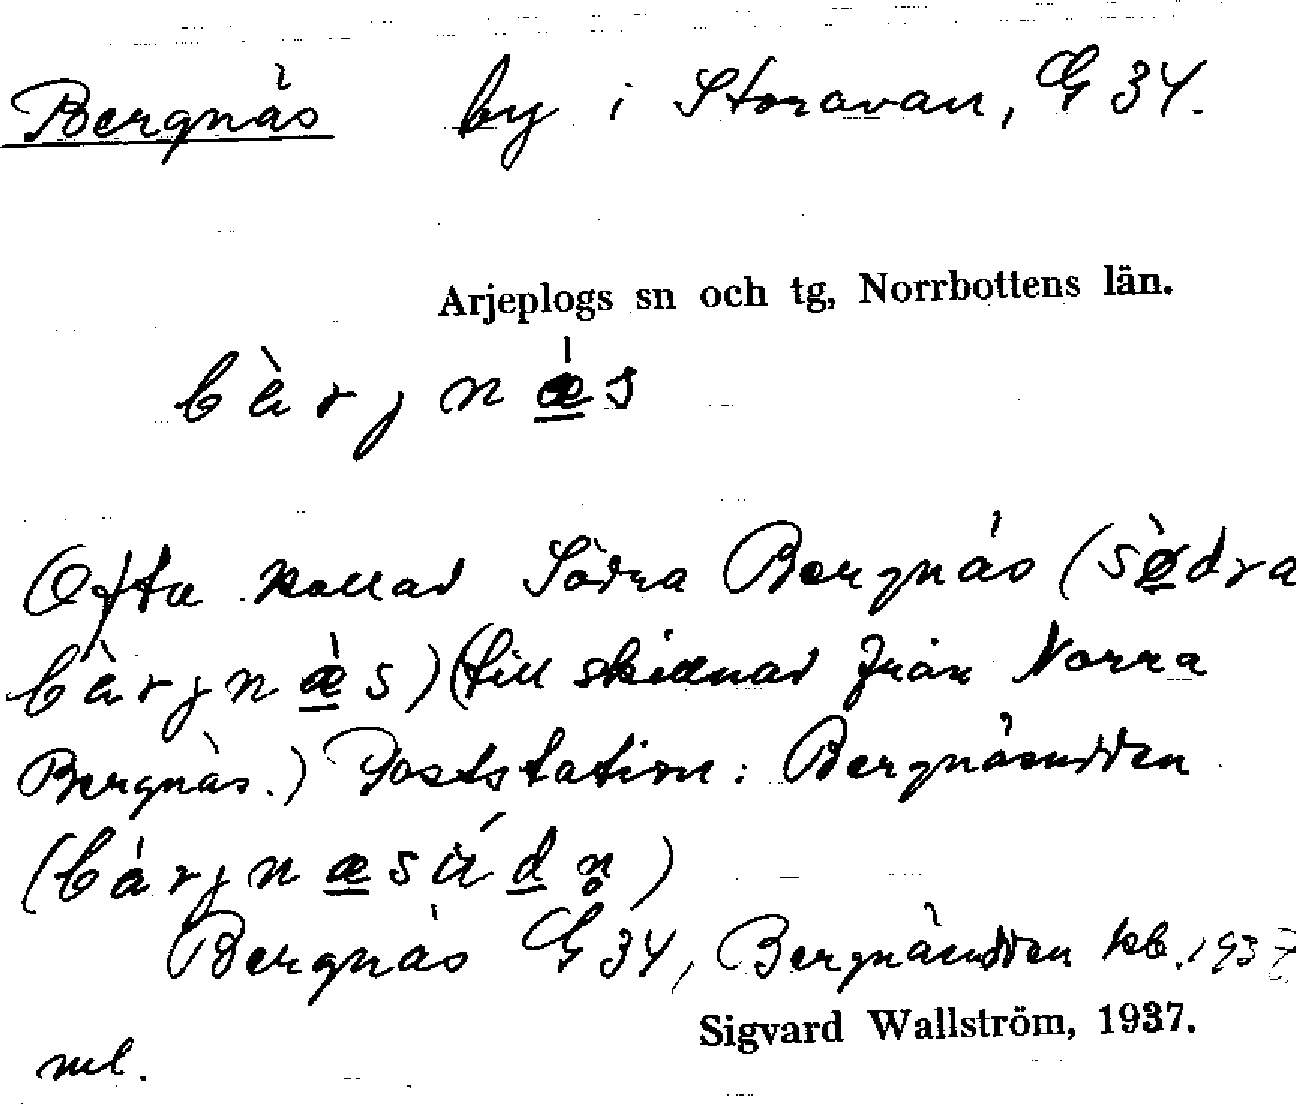 Bergnäs by i Storavan, G 34.
Arjeplogs sn och tg, Norrbottens län.
bèrjnæ̀s
Ofta kallad Södra Bergnäs (sø̀dra
bèrjnæ̀s) (till skillnad från Norra
Bergnäs.) Poststation: Bergnäsudden
(bàrjnæsúdn̥)
Bergnäs G 34, Bergnäsudden kb. 1937
Sigvard Wallström, 1937.
ml.